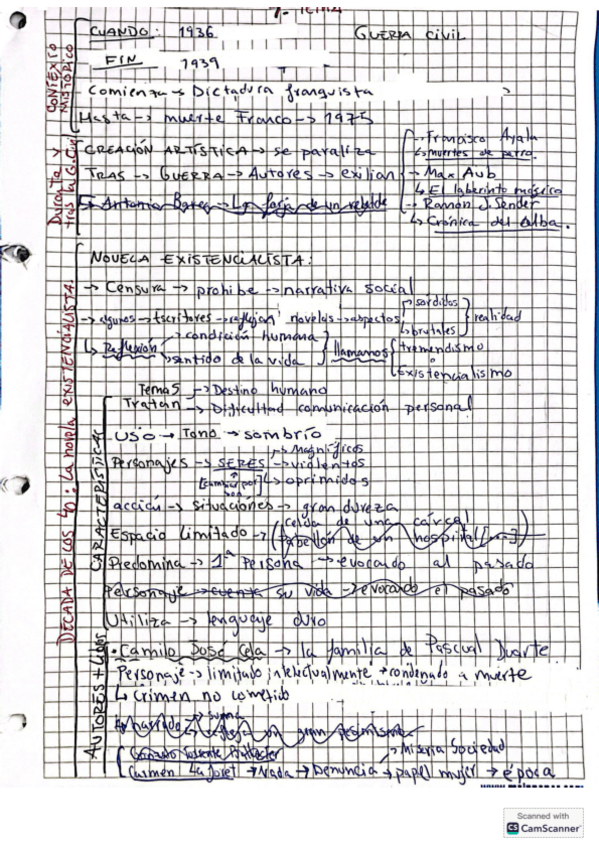 7- TEMA
CUANDO: 1936 GUERRA CIVIL
FIN 1939
Comienza → Dictadura franquista
Hasta → muerte Franco → 1975
CONTEXTO HISTÓRICO
Durante y tras la G. Civil
CREACIÓN ARTÍSTICA → se paraliza
TRAS → GUERRA → Autores → exilian
→ Francisco Ayala
↳ muertes de perro.
→ Max Aub
↳ El laberinto mágico
→ Ramón J. Sender
↳ Crónica del Alba.
Antonio Barea → La forja de un rebelde
DÉCADA DE LOS 40: La novela EXISTENCIALISTA.
NOVELA EXISTENCIALISTA:
→ Censura → prohibe → narrativa social
→ algunos → escritores → reflejan novelas → aspectos
→ sórdidos
↳ brutales
realidad
↳ Reflexión
→ condición humana
→ sentido de la vida
llamamos
→ tremendismo
o
existencialismo
CARACTERÍSTICAS
Temas → Destino humano
Tratan → Dificultad comunicación personal
USO → Tono → sombrío
Personajes → SERES → violentos
↳ oprimidos
acción → situaciones → gran dureza
Espacio limitado → (celda de una cárcel
pabellón de un hospital [...])
Predomina → 1ª Persona → evocando al pasado
Personaje → cuenta su vida → evocando el pasado
Utiliza → lenguaje duro
AUTORES + LIBROS
• Camilo José Cela → la familia de Pascual Duarte
Personaje → limitado intelectualmente → condenado a muerte
↳ Crimen no cometido
gran pesimismo
Gonzalo Torrente Ballester
Carmen Laforet → Nada → Denuncia → papel mujer → época
→ Miseria Sociedad
Scanned with
CS CamScanner